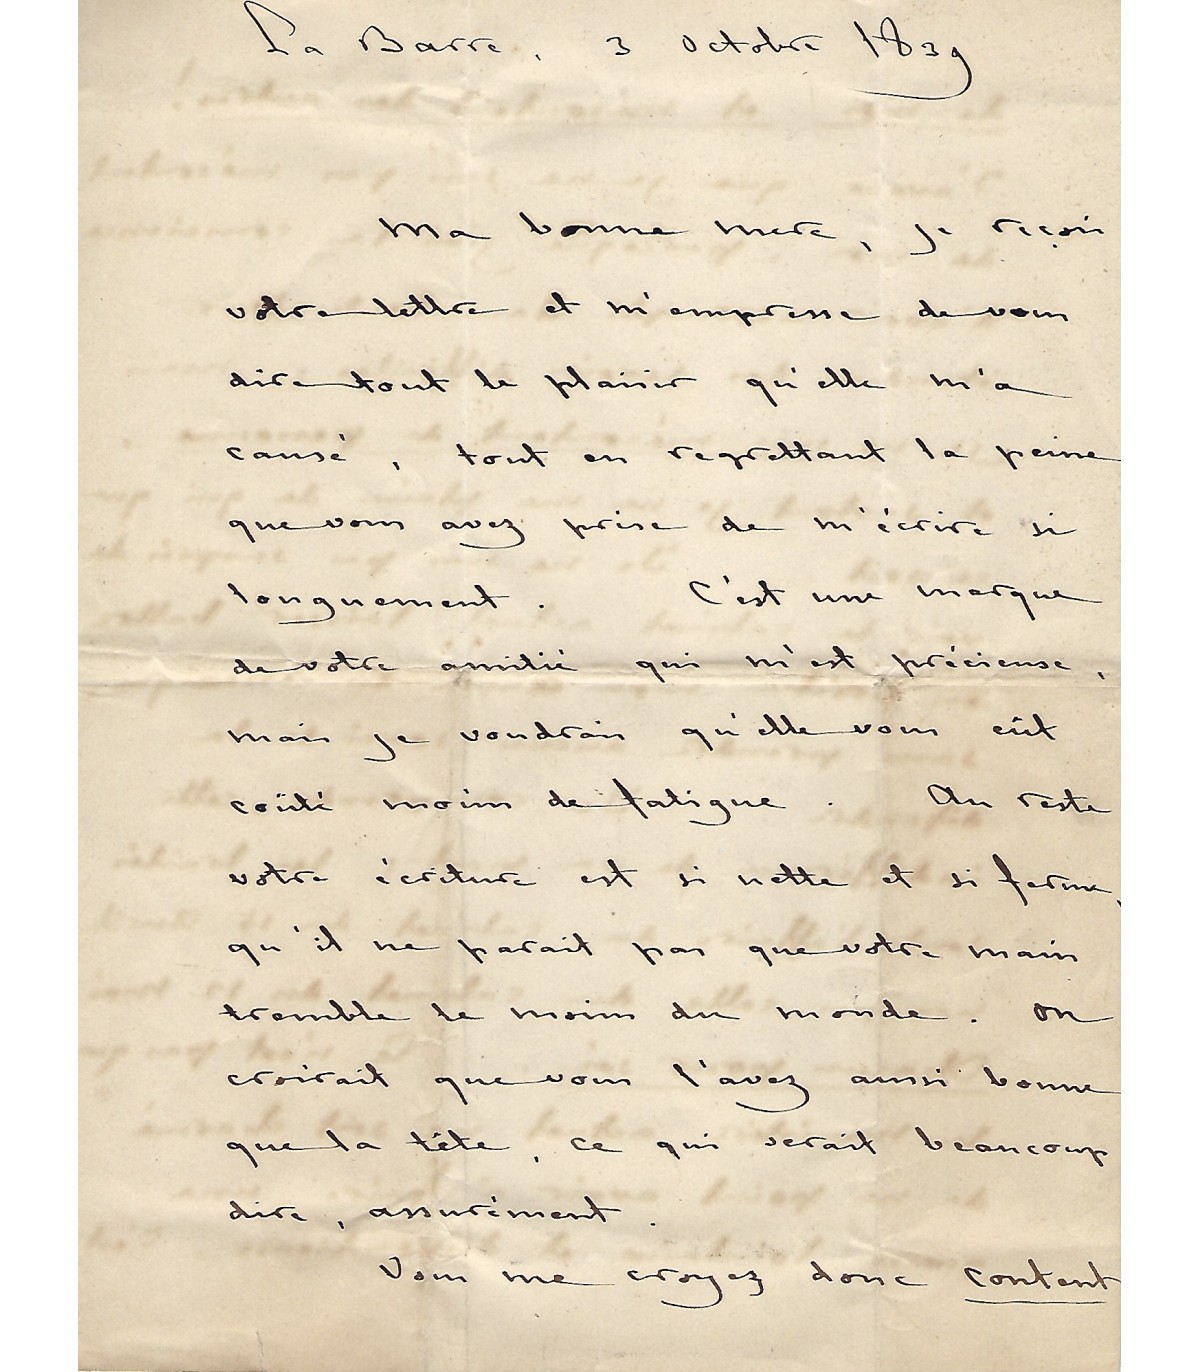 La Barre, 3 octobre 1839
Ma bonne mere, je reçois
votre lettre et m'empresse de vous
dire tout le plaisir qu'elle m'a
causé, tout en regrettant la peine
que vous avez prise de m'écrire si
longuement. C'est une marque
de votre amitié qui m'est précieuse,
mais je voudrais qu'elle vous eût
coûté moins de fatigue. Au reste
votre écriture est si nette et si ferme,
qu'il ne parait pas que votre main
tremble le moins du monde. On
croirait que vous l'avez aussi bonne
que la tête, ce qui serait beaucoup
dire, assurément.
Vous me croyez donc content